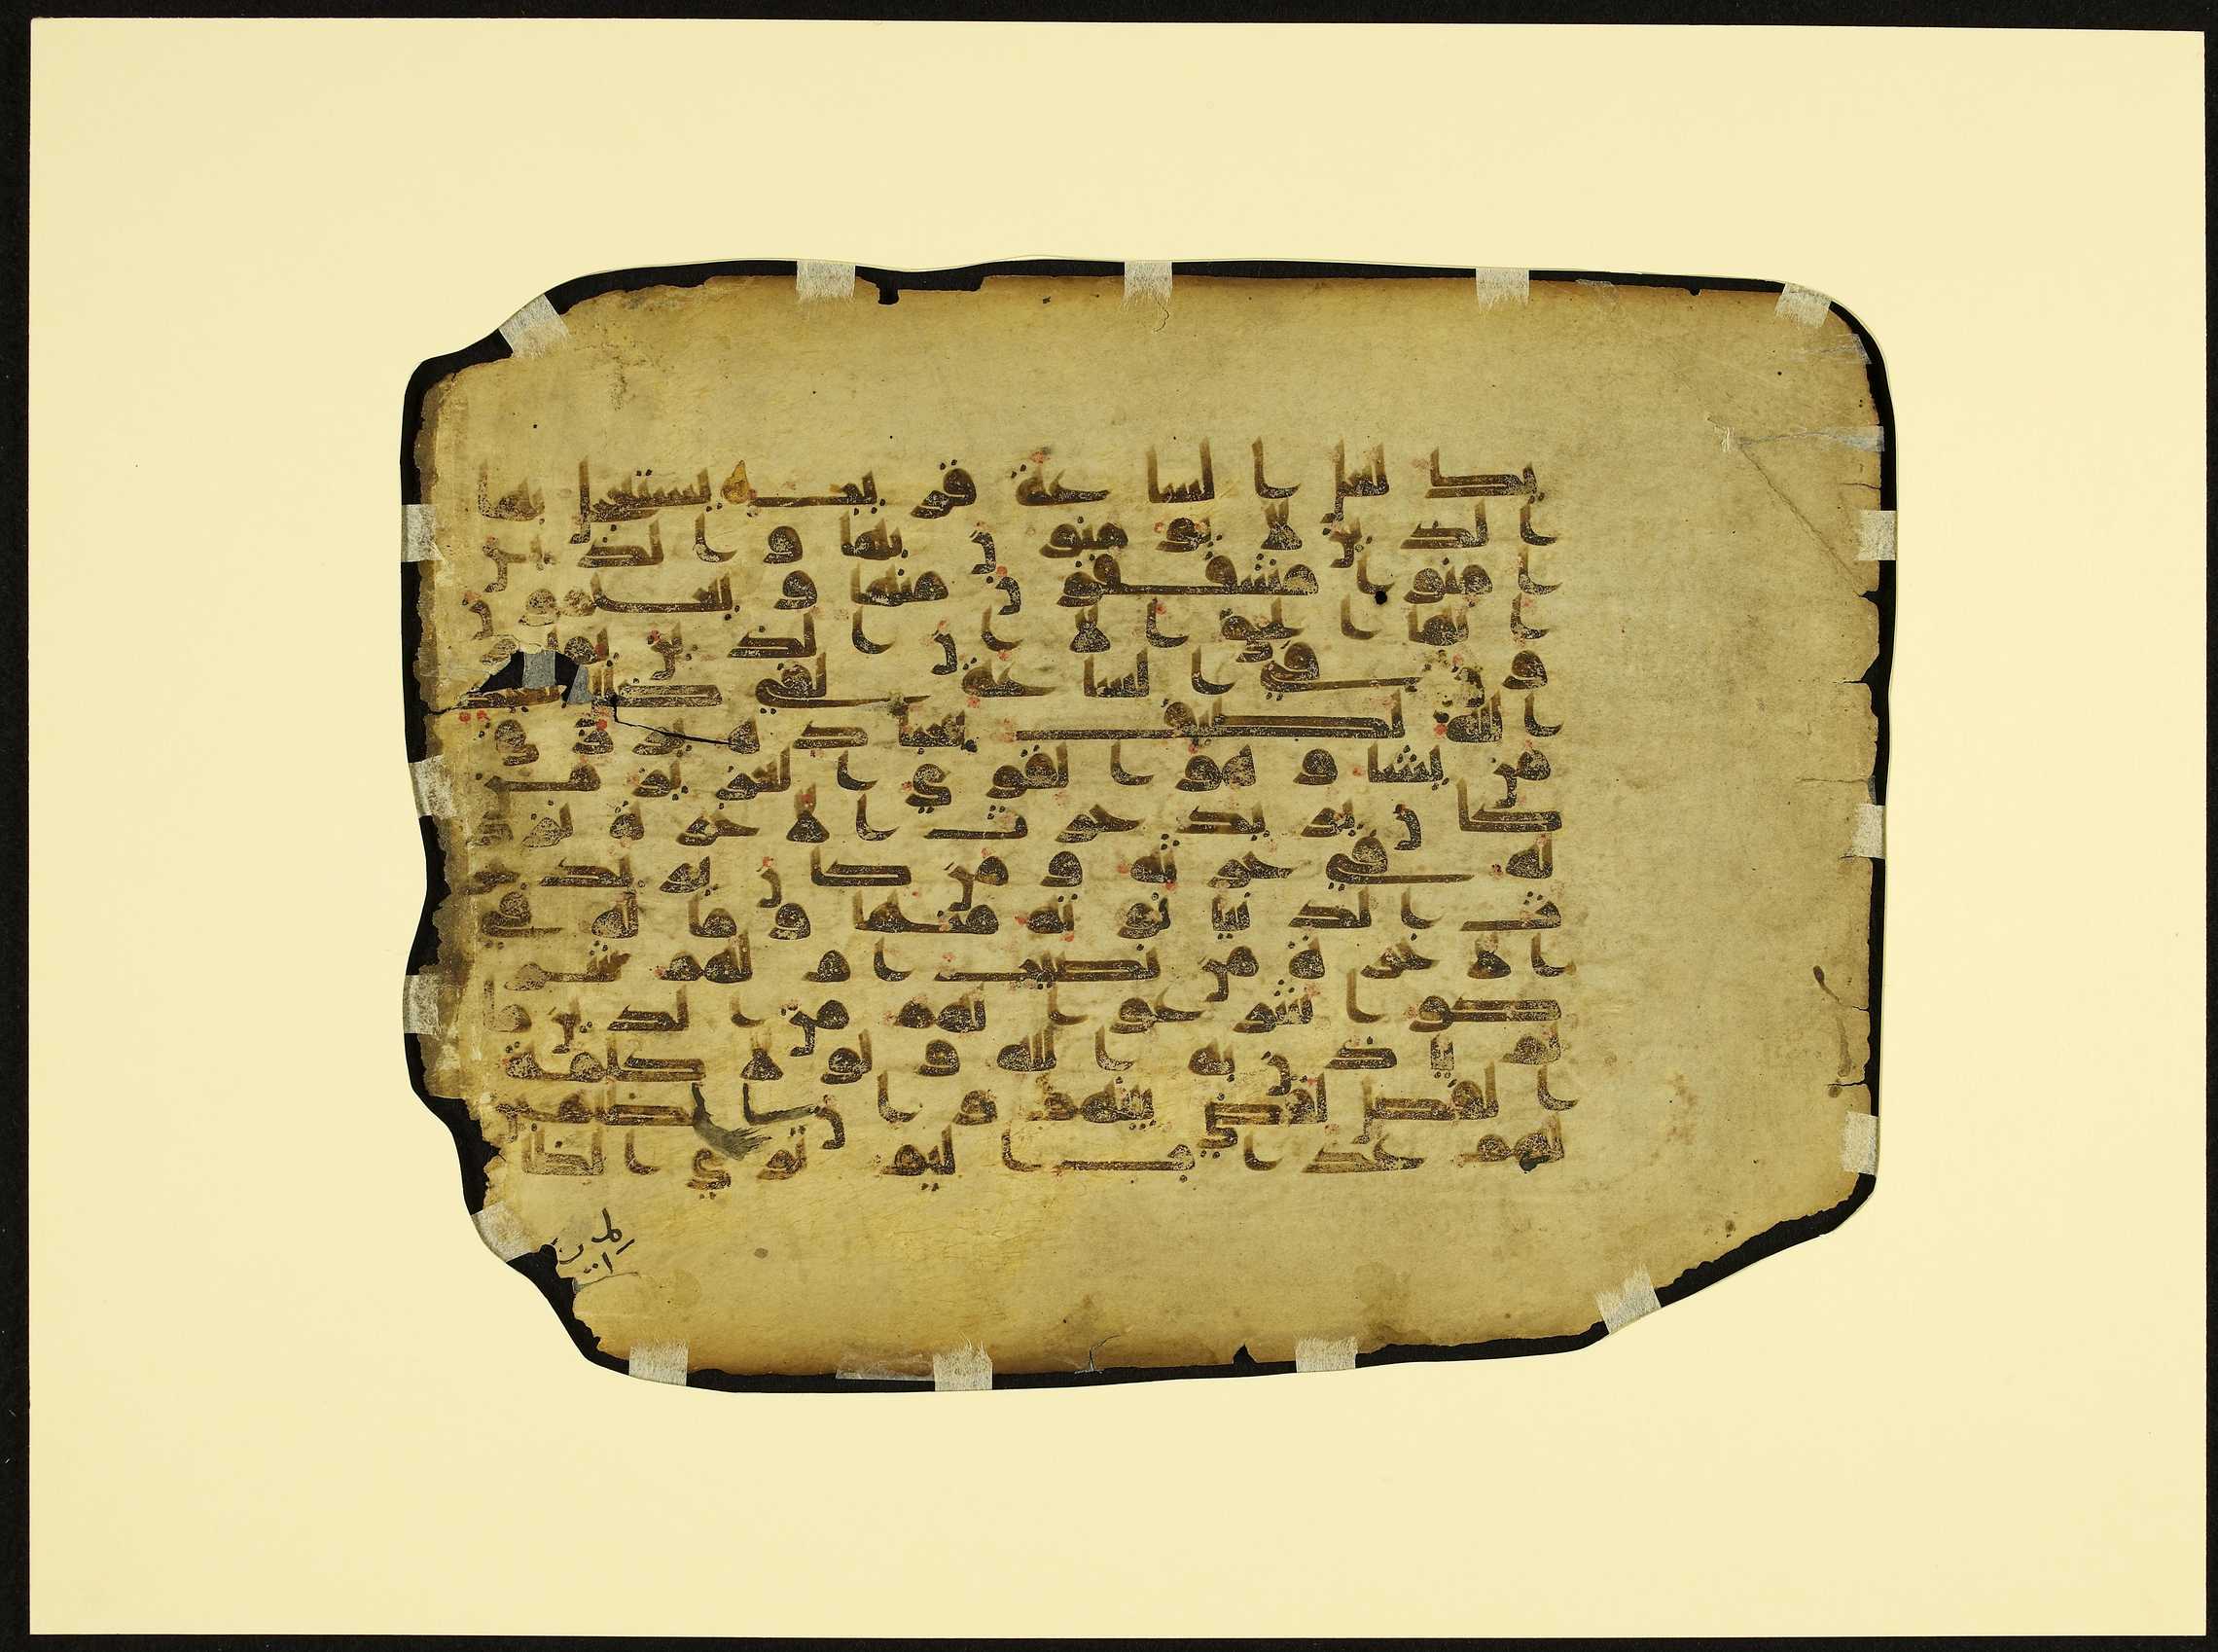 يك لعل الساعة قريب يستعجل بها
الذين لا يومنون بها والذين
امنوا مشفقون منها ويعلمون
انها الحق الا ان الذين يمار
ون في الساعة لفي ضلل بعيد
الله لطيف بعباده يرزق
من يشا وهو القوي العزيز من
كان يريد حرث الاخرة نزد
له في حرثه ومن كان يريد حر
ث الدنيا نوته منها وما له في
الاخرة من نصيب ام لهم شر
كوا شرعوا لهم من الدين ما
لم ياذن به الله ولولا كلمة
الفصل لقضي بينهم وان الظلمين
لهم عذاب اليم تري الظا